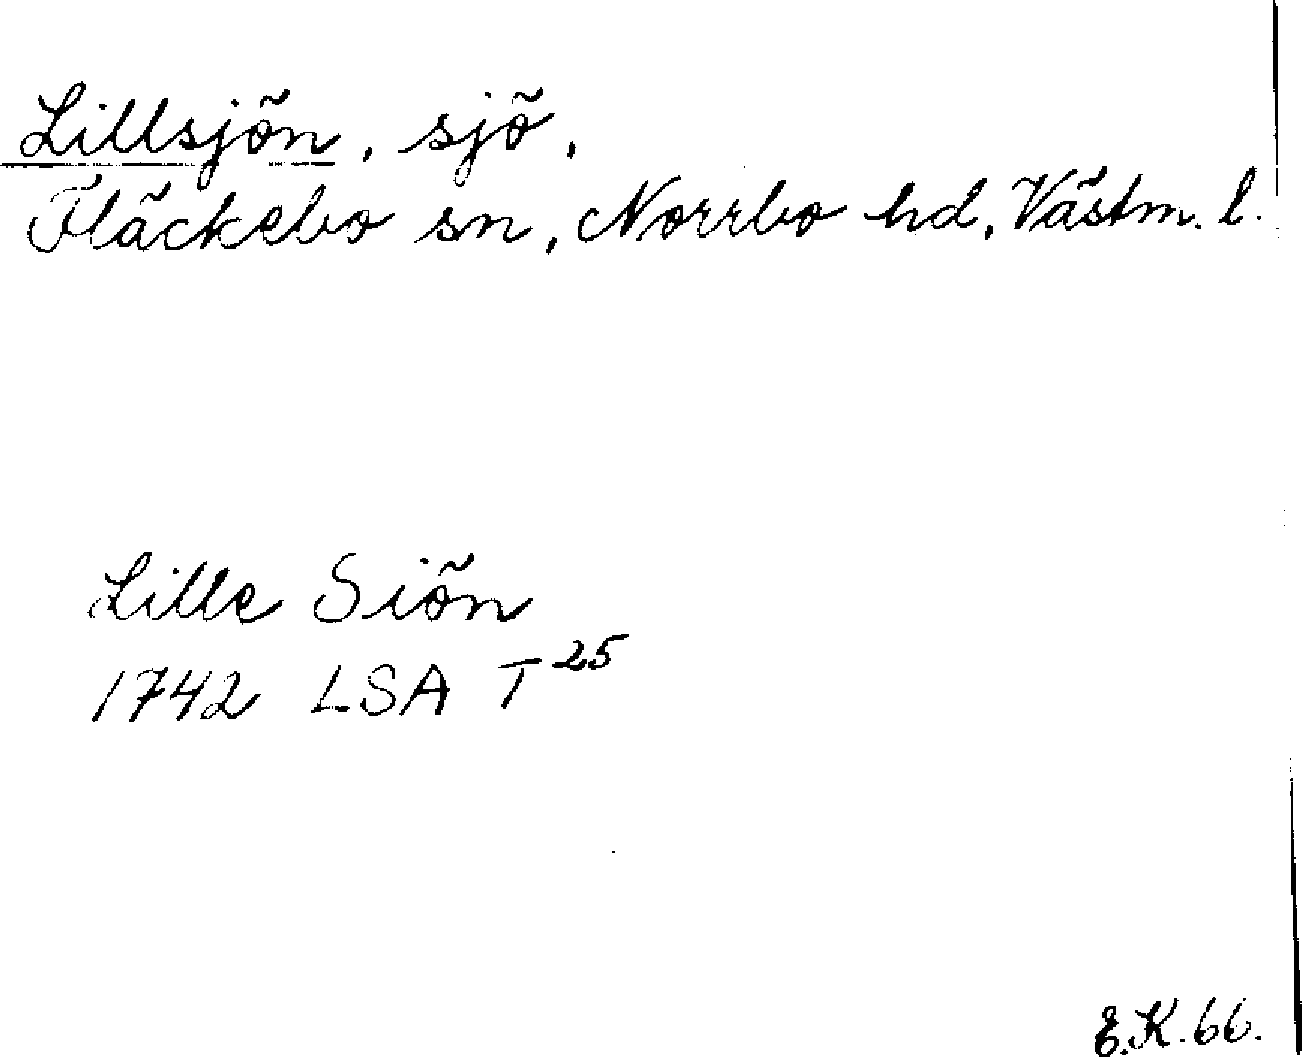 Lillsjön, sjö,
Fläckebo sn, Norrbo hd, Västm. l.
Lille Siön
1742 LSA T25
E.K. 66.